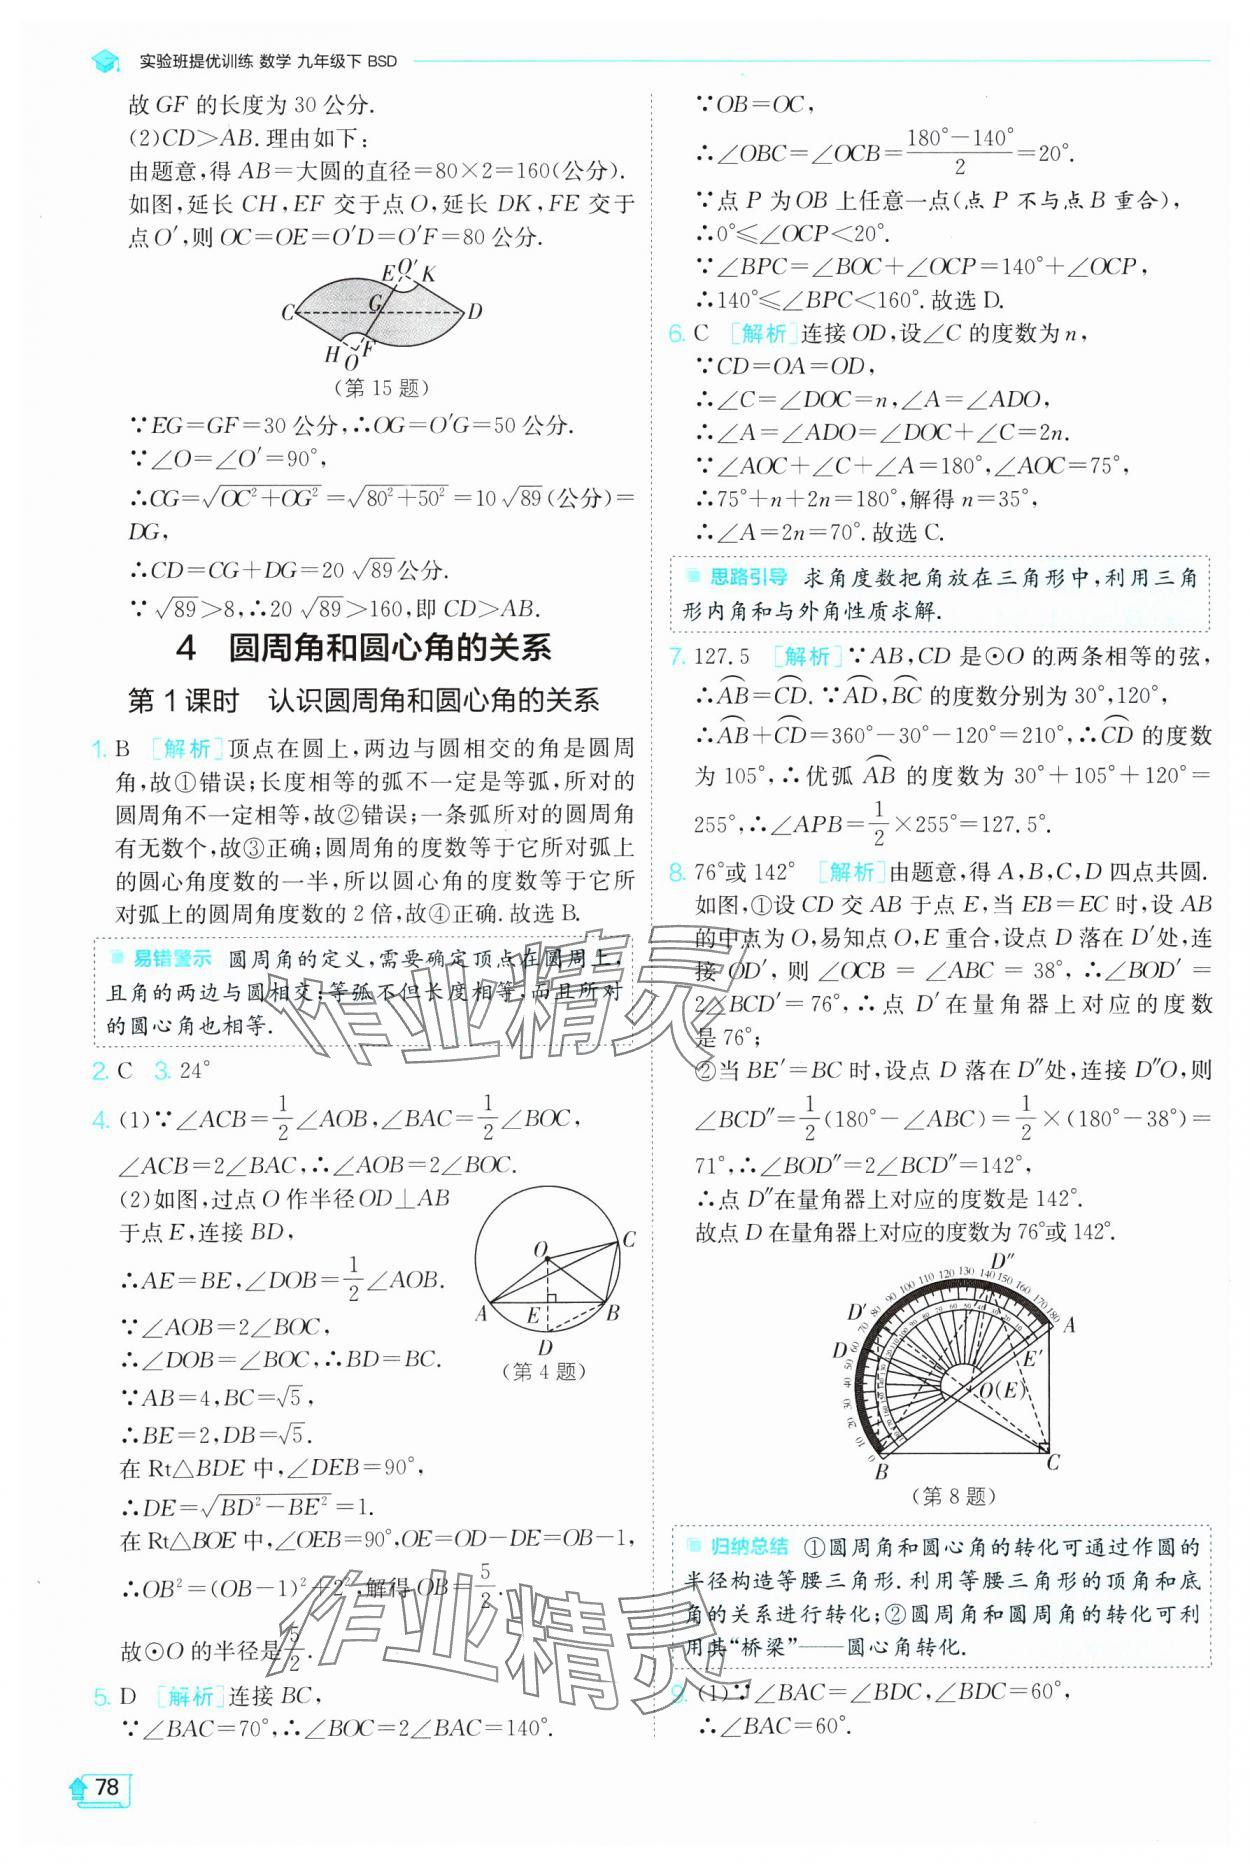 实验班提优训练 数学 九年级下 BSD
故 GF 的长度为 30 公分.
(2)CD>AB. 理由如下:
由题意,得 AB=大圆的直径=80×2=160(公分).
如图,延长 CH,EF 交于点 O,延长 DK,FE 交于
点 O′,则 OC=OE=O′D=O′F=80 公分.
E O′ K
C G D
H O F
(第 15 题)
∵EG=GF=30 公分,∴OG=O′G=50 公分.
∵∠O=∠O′=90°,
∴CG=√(OC²+OG²)=√(80²+50²)=10√89(公分)=
DG,
∴CD=CG+DG=20√89公分.
∵√89>8,∴20√89>160,即 CD>AB.
4 圆周角和圆心角的关系
第 1 课时 认识圆周角和圆心角的关系
1. B [解析]顶点在圆上,两边与圆相交的角是圆周
角,故①错误;长度相等的弧不一定是等弧,所对的
圆周角不一定相等,故②错误;一条弧所对的圆周角
有无数个,故③正确;圆周角的度数等于它所对弧上
的圆心角度数的一半,所以圆心角的度数等于它所
对弧上的圆周角度数的 2 倍,故④正确. 故选 B.
易错警示 圆周角的定义,需要确定顶点在圆周上,
且角的两边与圆相交;等弧不但长度相等,而且所对
的圆心角也相等.
2. C 3. 24°
4. (1)∵∠ACB=1/2∠AOB,∠BAC=1/2∠BOC,
∠ACB=2∠BAC,∴∠AOB=2∠BOC.
(2)如图,过点 O 作半径 OD⊥AB
于点 E,连接 BD,
∴AE=BE,∠DOB=1/2∠AOB.
∵∠AOB=2∠BOC,
∴∠DOB=∠BOC,∴BD=BC.
∵AB=4,BC=√5,
∴BE=2,DB=√5.
O C
A E B
D
(第 4 题)
在 Rt△BDE 中,∠DEB=90°,
∴DE=√(BD²-BE²)=1.
在 Rt△BOE 中,∠OEB=90°,OE=OD-DE=OB-1,
∴OB²=(OB-1)²+2²,解得 OB=5/2.
故⊙O 的半径是5/2.
5. D [解析]连接 BC,
∵∠BAC=70°,∴∠BOC=2∠BAC=140°.
78
∵OB=OC,
∴∠OBC=∠OCB=(180°-140°)/2=20°.
∵点 P 为 OB 上任意一点(点 P 不与点 B 重合),
∴0°≤∠OCP<20°.
∵∠BPC=∠BOC+∠OCP=140°+∠OCP,
∴140°≤∠BPC<160°. 故选 D.
6. C [解析]连接 OD,设∠C 的度数为 n,
∵CD=OA=OD,
∴∠C=∠DOC=n,∠A=∠ADO,
∴∠A=∠ADO=∠DOC+∠C=2n.
∵∠AOC+∠C+∠A=180°,∠AOC=75°,
∴75°+n+2n=180°,解得 n=35°,
∴∠A=2n=70°. 故选 C.
思路引导 求角度数把角放在三角形中,利用三角
形内角和与外角性质求解.
7. 127.5 [解析]∵AB,CD 是⊙O 的两条相等的弦,
∴⌒AB=⌒CD. ∵⌒AD,⌒BC 的度数分别为 30°,120°,
∴⌒AB+⌒CD=360°-30°-120°=210°,∴⌒CD 的度数
为 105°,∴优弧 ⌒AB 的度数为 30°+105°+120°=
255°,∴∠APB=1/2×255°=127.5°.
8. 76°或 142° [解析]由题意,得 A,B,C,D 四点共圆.
如图,①设 CD 交 AB 于点 E,当 EB=EC 时,设 AB
的中点为 O,易知点 O,E 重合,设点 D 落在 D′处,连
接 OD′,则 ∠OCB = ∠ABC = 38°,∴∠BOD′ =
2∠BCD′=76°,∴点 D′在量角器上对应的度数
是 76°;
②当 BE′=BC 时,设点 D 落在 D″处,连接 D″O,则
∠BCD″=1/2(180°-∠ABC)=1/2×(180°-38°)=
71°,∴∠BOD″=2∠BCD″=142°,
∴点 D″在量角器上对应的度数是 142°.
故点 D 在量角器上对应的度数为 76°或 142°.
D″
D′ A
D E′
O(E)
B C
(第 8 题)
归纳总结 ①圆周角和圆心角的转化可通过作圆的
半径构造等腰三角形. 利用等腰三角形的顶角和底
角的关系进行转化;②圆周角和圆周角的转化可利
用其“桥梁”——圆心角转化.
9. (1)∵∠BAC=∠BDC,∠BDC=60°,
∴∠BAC=60°.
作业精灵
作业精灵